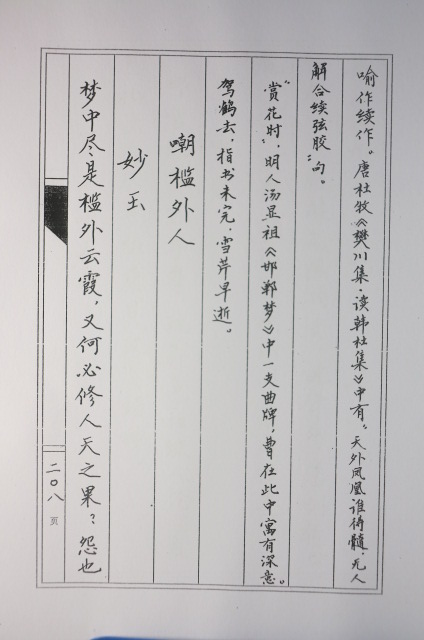 喻作续作。唐杜牧《樊川集·读韩杜集》中有“天外凤凰谁得髓，无人
解合续弦胶”句。
“赏花时”，明人汤显祖《邯郸梦》中一支曲牌，曹在此中寓有深意。
驾鹤去，指书未完，雪芹早逝。
嘲槛外人
妙玉
梦中尽是槛外云霞，又何必修人天之果？怨也
二〇八页